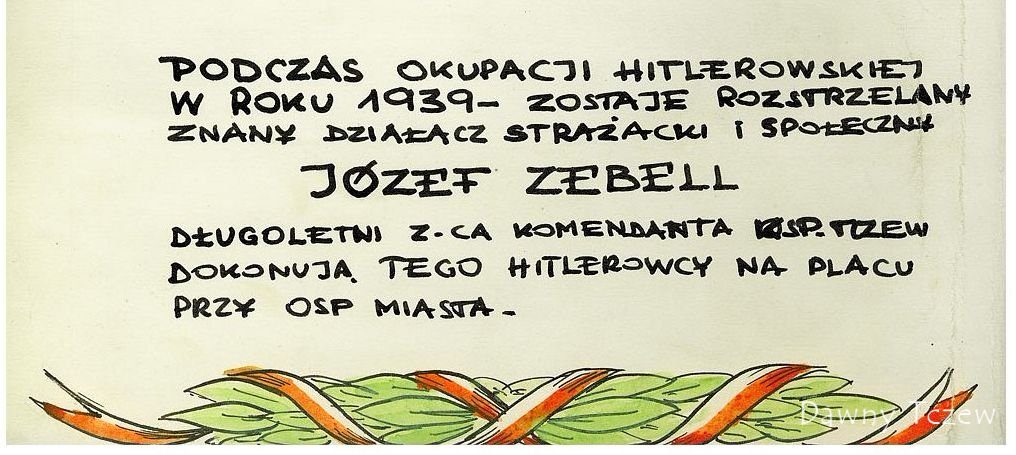 PODCZAS OKUPACJI HITLEROWSKIEJ
W ROKU 1939- ZOSTAJE ROZSTRZELANY
ZNANY DZIAŁACZ STRAŻACKI i SPOŁECZNY
JÓZEF ZEBELL
DŁUGOLETNI Z-CA KOMENDANTA TCZEW
DOKONUJĄ TEGO HITLEROWCY NA PLACU
PRZY OSP MIASTA.-
Dawny Tczew